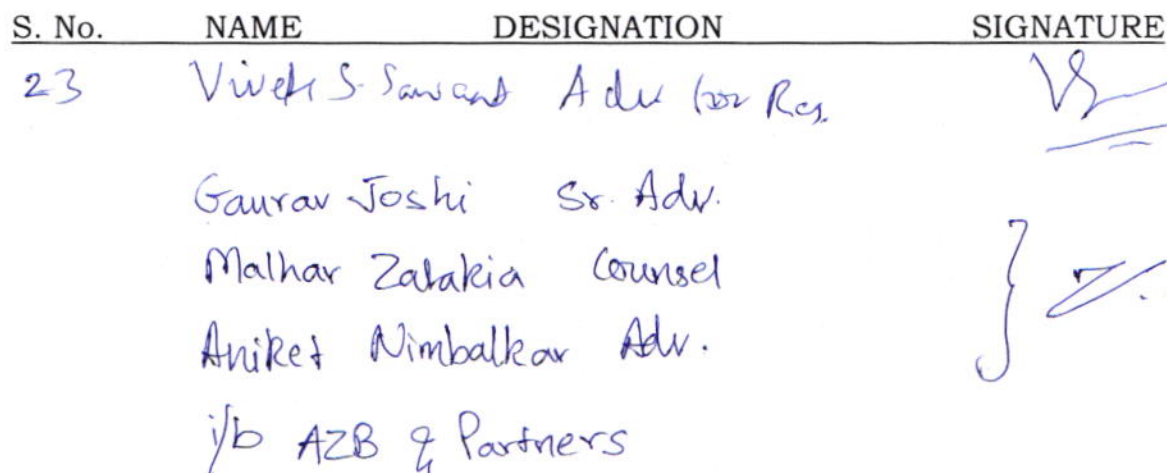 S. No. NAME DESIGNATION SIGNATURE
23 Vivek S. Sawant Adv for Res.
Gaurav Joshi Sr. Adv.
Malhar Zatakia Counsel
Aniket Nimbalkar Adv.
i/b AZB & Partners